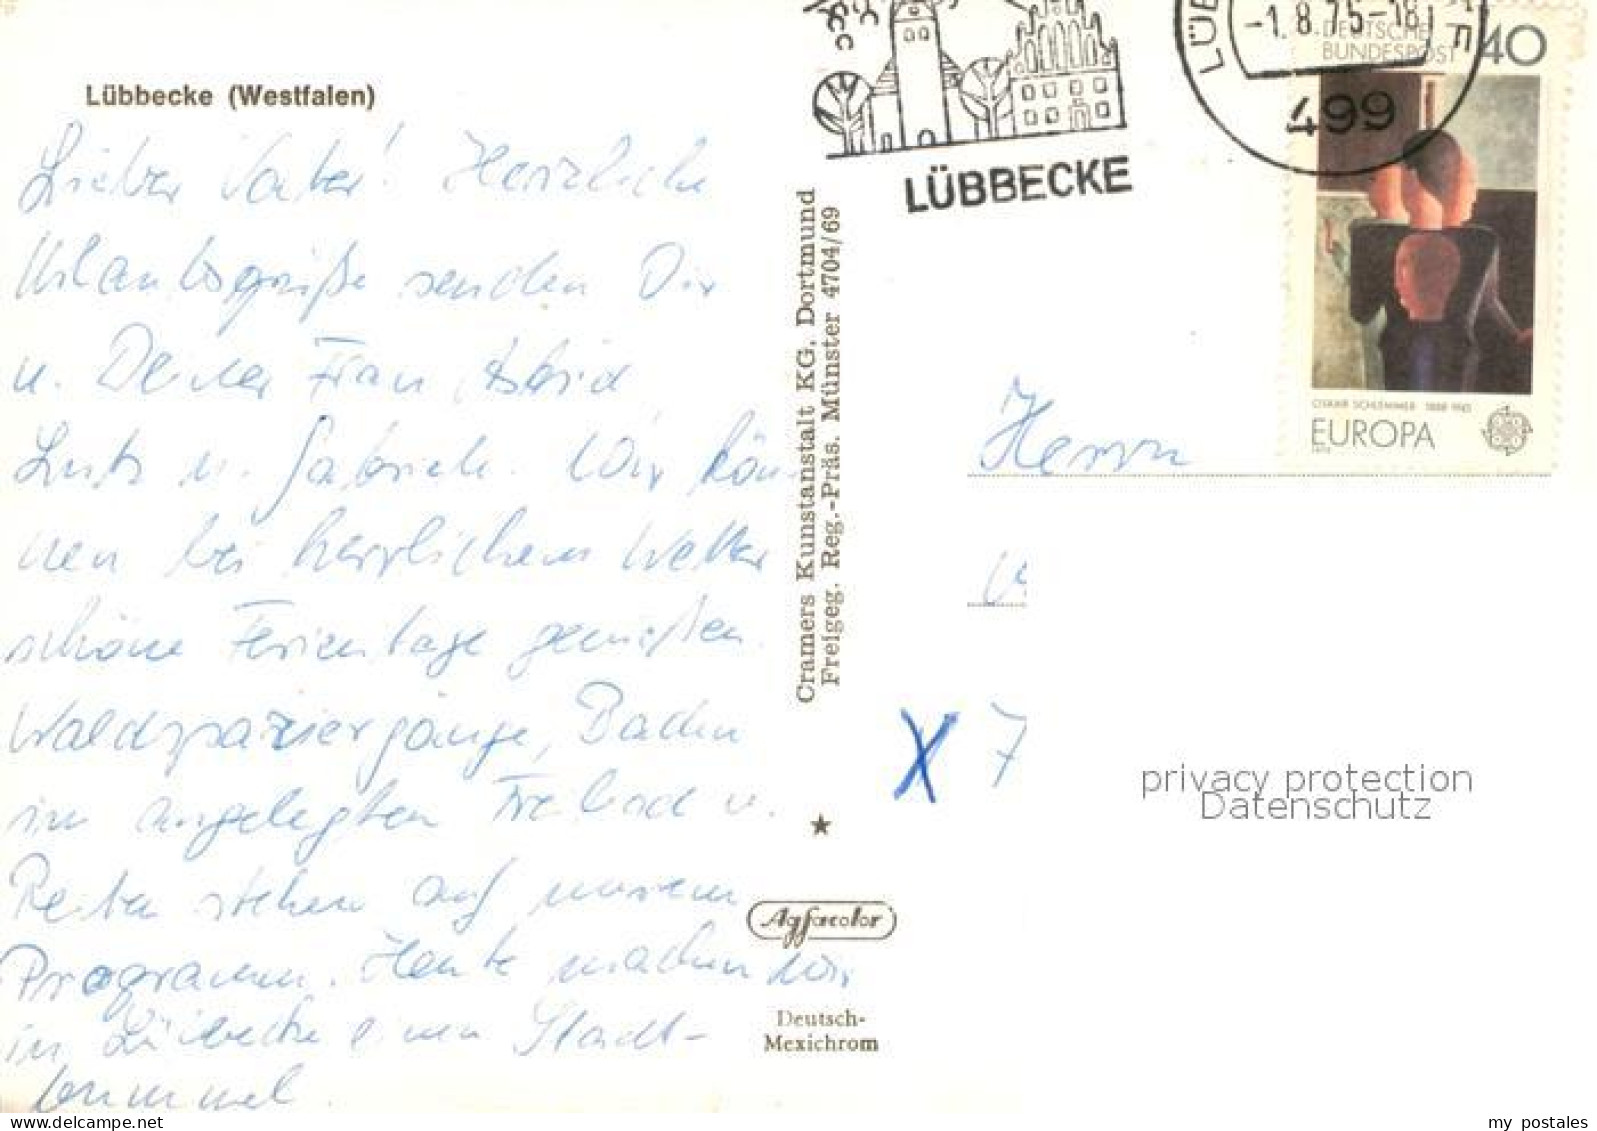 Lübbecke (Westfalen)
Lieber Vater! Herzliche
Urlaubsgrüße senden Dir
u. Deiner Frau Astrid
Lutz u. Gabriele. Wir kön-
nen bei herrlichem Wetter
schöne Ferientage genießen.
Waldspaziergänge, Baden
im angelegten Freibad u.
Reiten stehen auf unserem
Programm. Heute machen wir
in Lübbecke einen Stadt-
bummel.
Cramers Kunstanstalt KG, Dortmund
Freigeg. Reg.-Präs. Münster 4704/69
★
Agfacolor
Deutsch-
Mexichrom
LÜBBECKE
LÜB
-1.8.75-18
499
DEUTSCHE
BUNDESPOST
40
OSKAR SCHLEMMER 1888-1943
EUROPA
Herrn
X 7
privacy protection
Datenschutz
my postales